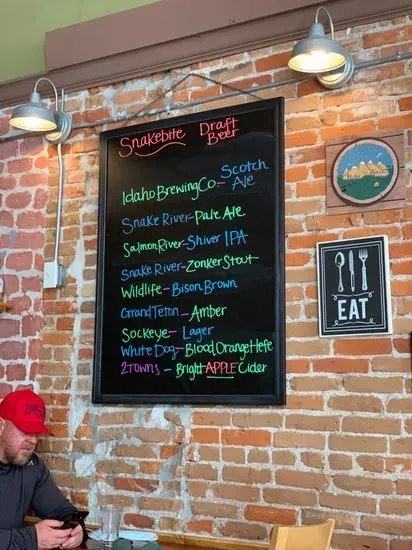 Snakebite Draft
Beer
Idaho Brewing Co - Scotch
Ale
Snake River - Pale Ale
Salmon River - Shiver IPA
Snake River - Zonker Stout
Wildlife - Bison Brown
Grand Teton - Amber
Sockeye - Lager
White Dog - Blood Orange Hefe
2 Towns - Bright APPLE Cider
EAT